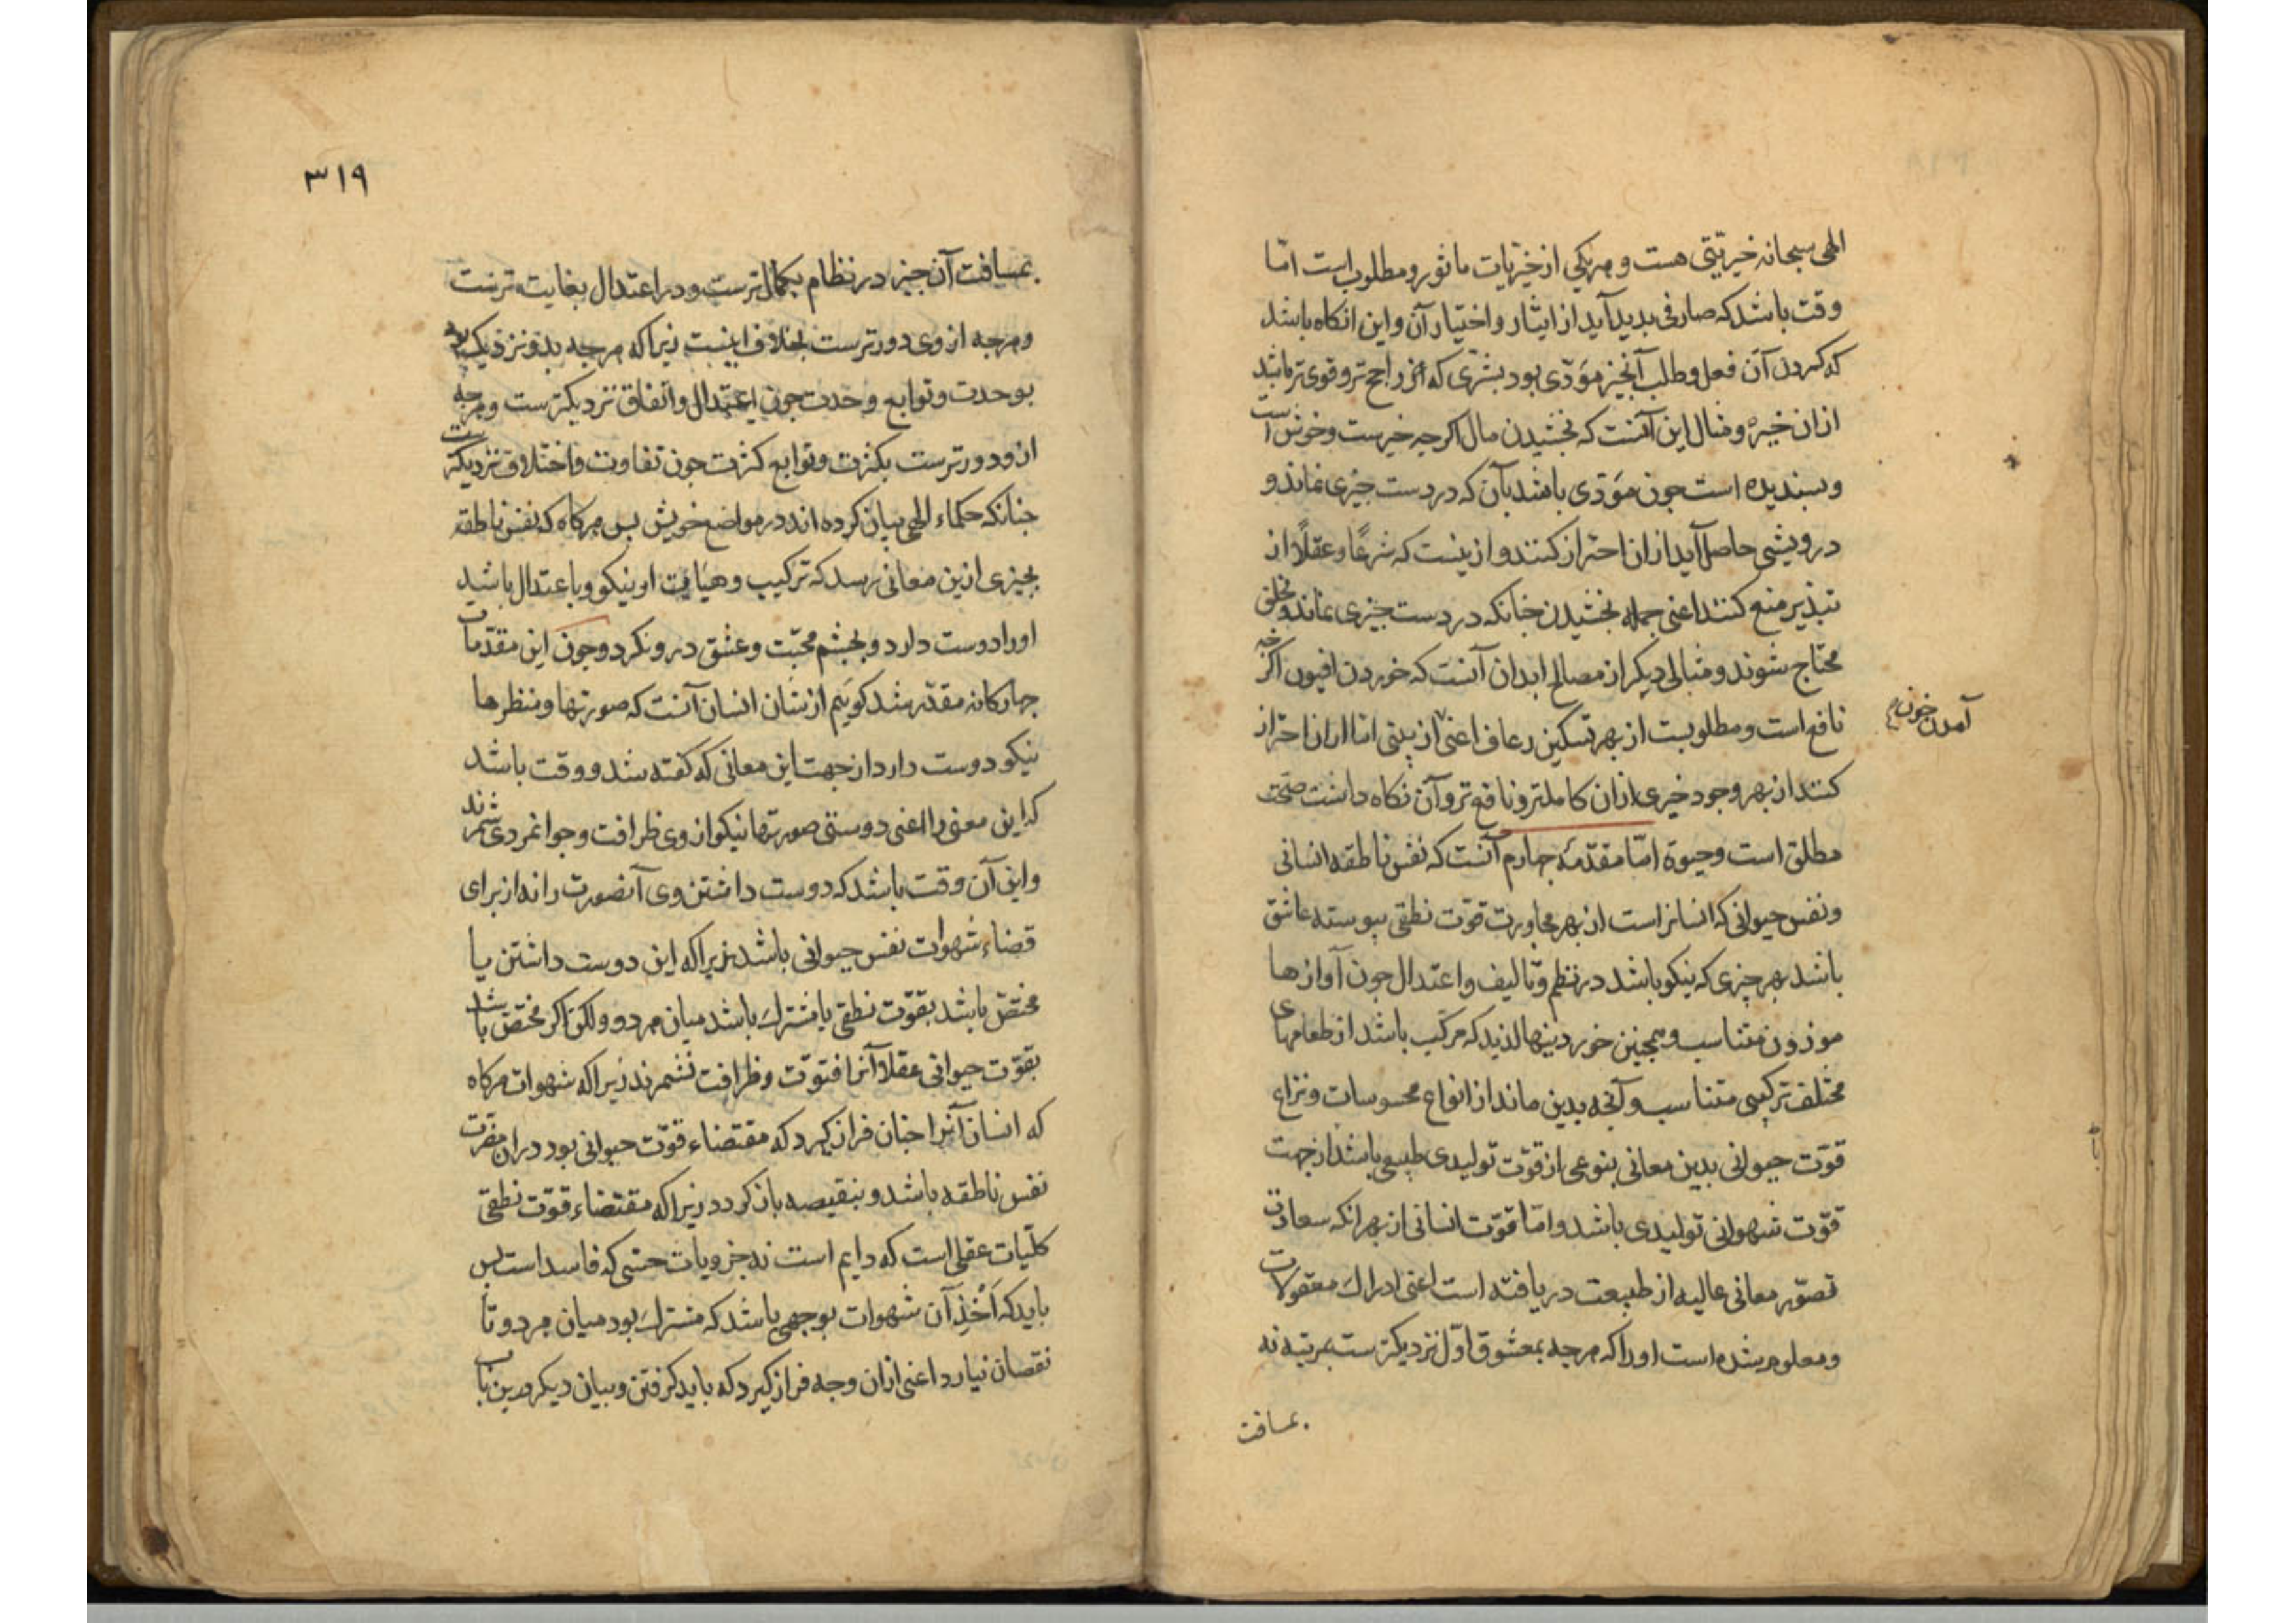 الهی سبحانه خیریتی هست و هریکی از خیریات ماثور و مطلوب است امّا
وقت باشد که صارفی بدید آید از ایثار و اختیار آن و این انکاه باشد
که کردن آن فعل و طلب آنچیز مؤدّی بود بشرّی که آن راجح تر و قوی تر باشد
ازان خیر و مثال این آنست که بخشیدن مال اکرچه خیرست و خوش است
و بسندیده است جون مؤدّی باشد بآن که در دست جیزی نماند و
درویشی حاصل آید ازان احتراز کنند و ازینست که شرعًا و عقلًا از
تبذیر منع کنند اعنی جمله بخشیدن جنانکه در دست جیزی نماند و بخلق
محتاج شوند و مثالی دیکر از مصالح ابدان آنست که خوردن افیون اکرچه
نافع است و مطلوبست از بهر تسکین رعاف اعنی از بینی امّا ازان احتراز
آمدن خون
کنند از بهر وجود خیری ازان کاملتر و نافع تر و آن نکاه داشت صحّت
مطلق است و حیوة امّا مقدّمهٔ جهارم آنست که نفس ناطقه انسانی
و نفس حیوانی که انسانراست از بهر مجاورت قوّت نطقی بیوسته عاشق
باشد بهر چیزی که نیکو باشد در نظم و تالیف و اعتدال جون آوازها
موزون متناسب و همجنین خوردنیها لذید که مرکّب باشد از طعامهای
مختلف ترکیبی متناسب و آنجه بدین ماند از انواع محسوسات و نزاع
قوّت حیوانی بدین معانی بنوعی از قوّت تولیدی طبیعی باشد از جهت
قوّت شهوانی تولیدی باشد و امّا قوّت انسانی از بهر انکه سعادت
تصوّر معانی عالیه از طبیعت دریافته است اعنی ادراك معقولات
و معلوم شده است او را که هرجه بمعشوق اوّل نزدیکترست بمرتبه نه
بمسافت
۳۱۹
بمسافت آن جیز در نظام بکمالترست و در اعتدال بغایت ترست
و هرجه از وی دورترست بخلاف اینست زیرا که هرجه بدو نزدیکتر
بوحدت و توابع وحدت جون اعتدال و اتفاق نزدیکترست و هرجه
ازو دورترست بکثرت و توابع کثرت جون تفاوت و اختلاف نزدیکترست
جنانکه حکماء الهی بیان کرده اند در مواضع خویش بس هرکاه که نفس ناطقه
بجیزی ازین معانی رسد که ترکیب و هیأت او نیکو و باعتدال باشد
او را دوست دارد و بجشم محبّت و عشق درو نکرد و جون این مقدّمات
جهارکانه مقدّر شد کوییم از شان انسان آنست که صورتها و منظرها
نیکو دوست دارد از جهت این معانی که کفته شد و وقت باشد
که این معنی را اعنی دوستی صورتها نیکو از وی ظرافت و جوانمردی شمرند
و این آن وقت باشد که دوست داشتن وی آنصورت را نه از برای
قضاء شهوات نفس حیوانی باشد زیرا که این دوست داشتن یا
مختصّ باشد بقوّت نطقی یا مشترك باشد میان هر دو ولکن اکر مختصّ باشد
بقوّت حیوانی عقلا آنرا فتوّت و ظرافت نشمرند زیرا که شهوات هرکاه
که انسان آنرا جنان فراز کیرد که مقتضاء قوّت حیوانی بود دران مضرّت
نفس ناطقه باشد و بنقیصه باز کردد زیرا که مقتضاء قوّت نطقی
کلّیات عقلی است که دایم است نه جزویات حسّی که فاسد است بس
باید که اَخْذِ آن شهوات بوجهی باشد که مشترك بود میان هر دو تا
نقصان نیارد اعنی ازان وجه فراز کیرد که باید کرفتن و بیان دیکر درین باب